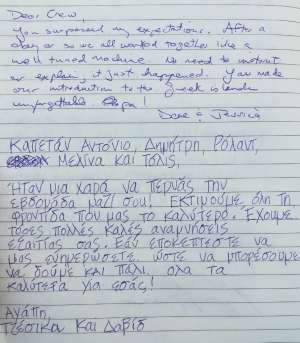 Dear Crew,
You surpassed my expectations. After a
day or so we all worked together like a
well tuned machine. No need to instruct
or explain, it just happened. You made
our introduction to the Greek islands
unforgettable. Opa!
Dave & Jessica
Καπετάν Αντόνιο, Δημήτρη, Ρόλαντ,
Μελίνα και Τόλις,
Ήταν μια χαρά να περνάς την
εβδομάδα μαζί σου! Εκτιμούμε όλη τη
φροντίδα που μας το καλύτερο. Έχουμε
τόσες πολλές καλές αναμνήσεις
εξαιτίας σας. Εάν επισκέπτεστε να
μας ενημερώσετε, ώστε να μπορέσουμε
να δούμε και πάλι. όλα τα
καλύτερα για εσάς!
Αγάπη,
Τζέσικα και Δαβίδ